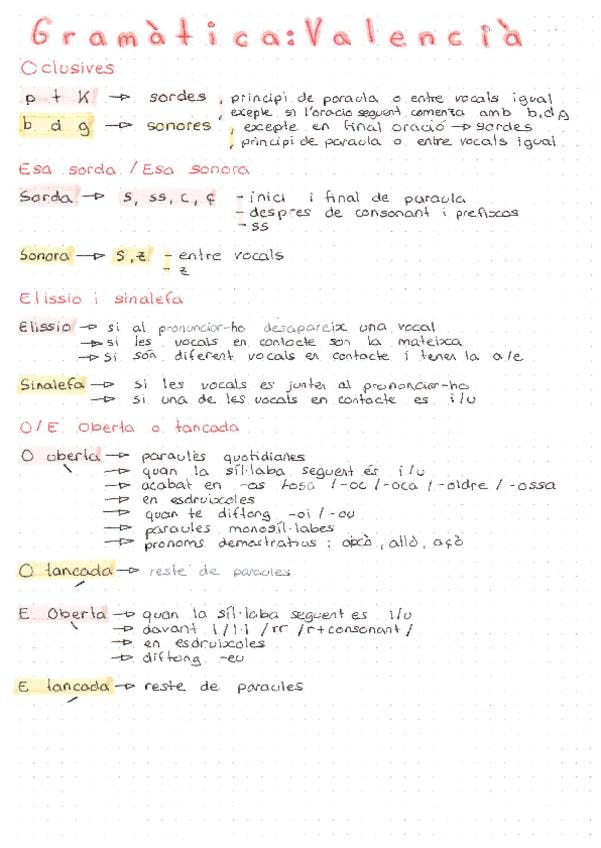 Gramàtica: Valencià
Oclusives
p t K → sordes , principi de paraula o entre vocals igual
, exepte si l'oració seguent comença amb b,d,g
b d g → sonores , excepte en final oració → sordes
, principi de paraula o entre vocals igual
Esa sorda / Esa sonora
Sorda → s, ss, c, ç - inici i final de paraula
- despres de consonant i prefixos
- ss
Sonora → S, z - entre vocals
- z
Elissio i sinalefa
Elissio → si al pronunciar-ho desapareix una vocal
→ si les vocals en contacte son la mateixa
→ si son diferent vocals en contacte i tenen la a/e
Sinalefa → si les vocals es junten al pronunciar-ho
→ si una de les vocals en contacte es i/u
O/E Oberta o tancada
O oberta → paraules quotidianes
→ quan la síl·laba seguent és i/u
→ acabat en -os /-osa /-oc /-oca /-oldre / -ossa
→ en esdruixoles
→ quan te diftong -oi / -ou
→ paraules monosíl·labes
→ pronoms demostratius : això, allò, açò
O tancada → reste de paraules
E Oberta → quan la síl·laba seguent es i/u
→ davant l /l·l /rr /r+consonant /
→ en esdruixoles
→ diftong -eu
E tancada → reste de paraules